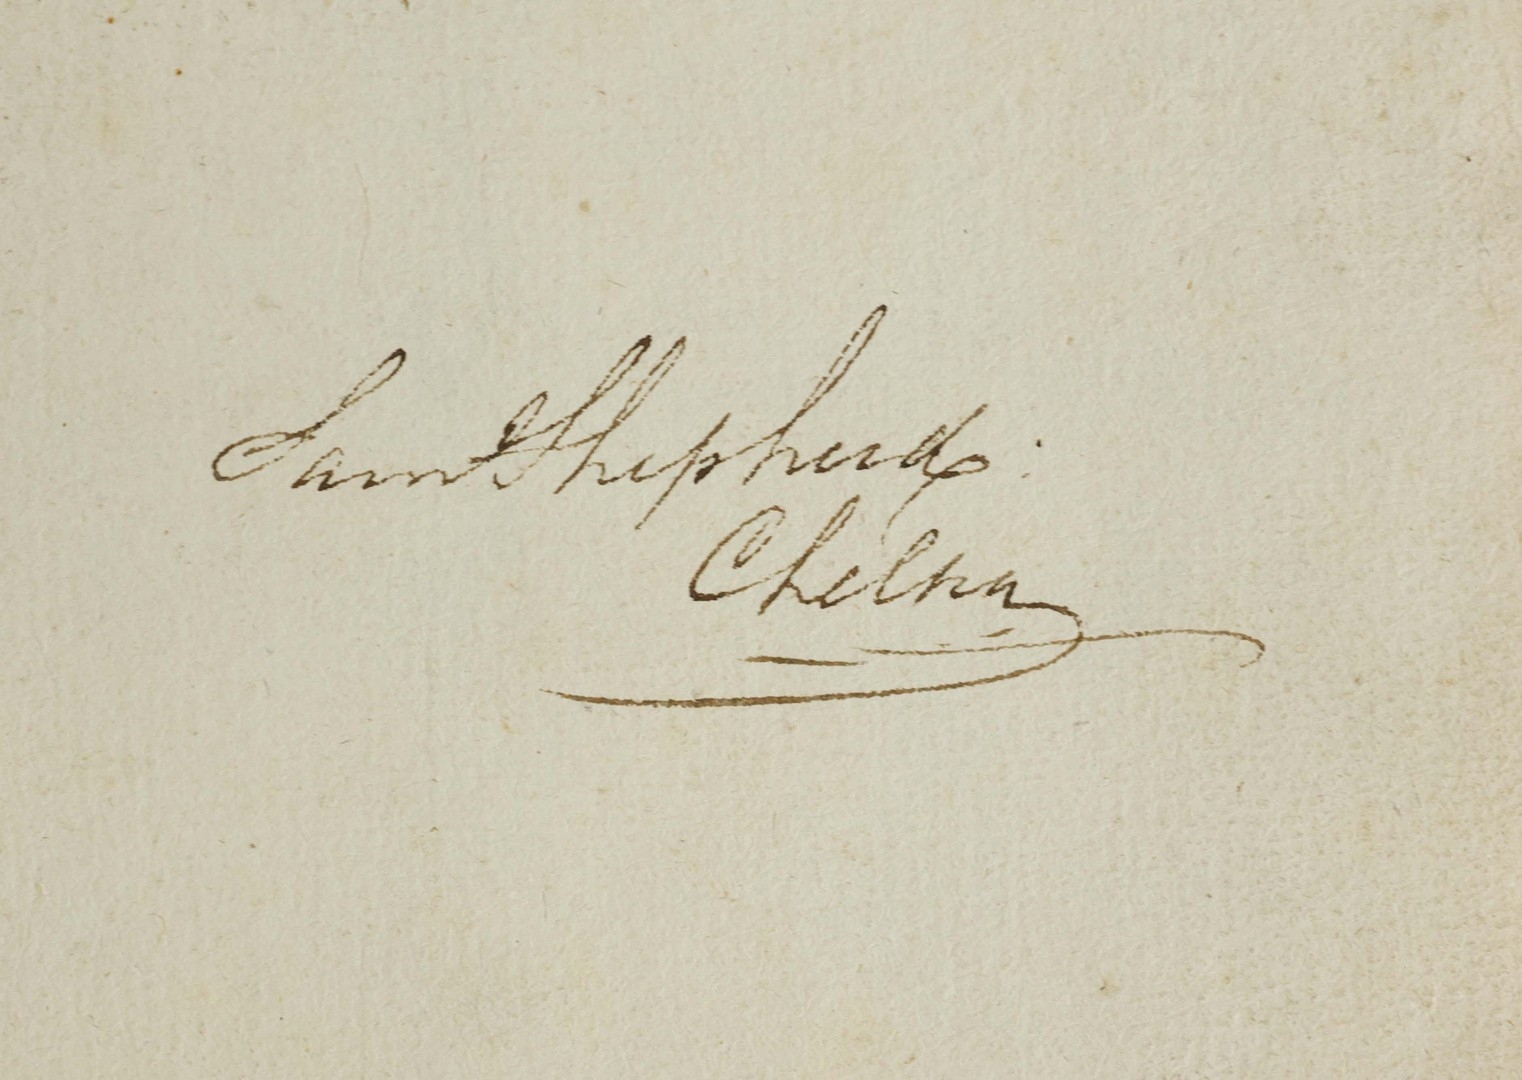 Sam Shepherd.
Chelsea